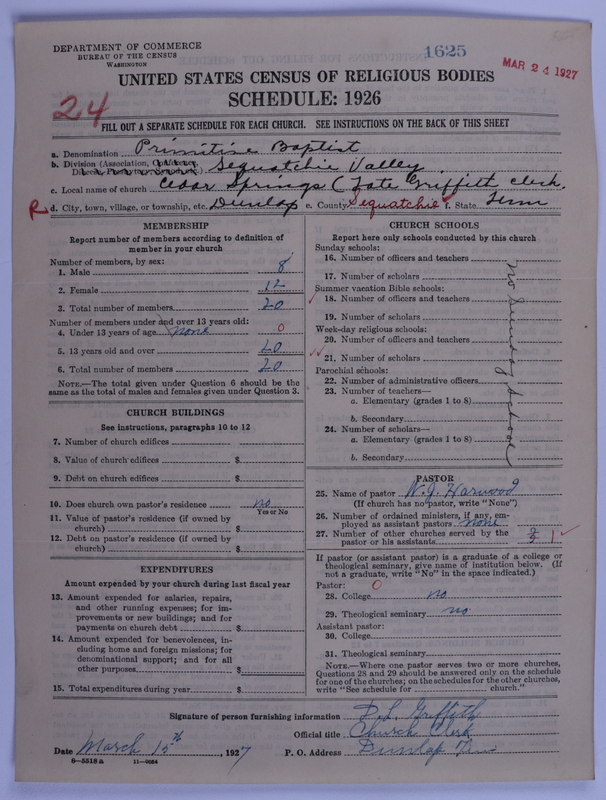 DEPARTMENT OF COMMERCE
BUREAU OF THE CENSUS
WASHINGTON
1625
MAR 24 1927
UNITED STATES CENSUS OF RELIGIOUS BODIES
SCHEDULE: 1926
24
FILL OUT A SEPARATE SCHEDULE FOR EACH CHURCH. SEE INSTRUCTIONS ON THE BACK OF THIS SHEET
a. Denomination Primitive Baptist
b. Division (Association, Sequatchie Valley
c. Local name of church Cedar Springs (Late Griffith clerk.
R d. City, town, village, or township, etc. Dunlap e. County Sequatchie f. State Tenn
MEMBERSHIP
Report number of members according to definition of member in your church
Number of members, by sex:
1. Male 8
2. Female 12
3. Total number of members 20
Number of members under and over 13 years old:
4. Under 13 years of age none 0
5. 13 years old and over 20
6. Total number of members 20
NOTE.—The total given under Question 6 should be the same as the total of males and females given under Question 3.
CHURCH BUILDINGS
See instructions, paragraphs 10 to 12
7. Number of church edifices
8. Value of church edifices $
9. Debt on church edifices $
10. Does church own pastor's residence no
Yes or No
11. Value of pastor's residence (if owned by church) $
12. Debt on pastor's residence (if owned by church) $
EXPENDITURES
Amount expended by your church during last fiscal year
13. Amount expended for salaries, repairs, and other running expenses; for improvements or new buildings; and for payments on church debt $
14. Amount expended for benevolences, including home and foreign missions; for denominational support; and for all other purposes $
15. Total expenditures during year $
CHURCH SCHOOLS
Report here only schools conducted by this church
Sunday schools:
16. Number of officers and teachers
17. Number of scholars
Summer vacation Bible schools:
18. Number of officers and teachers
19. Number of scholars
Week-day religious schools:
20. Number of officers and teachers
21. Number of scholars
Parochial schools:
22. Number of administrative officers
23. Number of teachers—
a. Elementary (grades 1 to 8)
b. Secondary
24. Number of scholars—
a. Elementary (grades 1 to 8)
b. Secondary
No Sunday School
PASTOR
25. Name of pastor W. J. Harwood
(If church has no pastor, write "None")
26. Number of ordained ministers, if any, employed as assistant pastors none
27. Number of other churches served by the pastor or his assistants 1
If pastor (or assistant pastor) is a graduate of a college or theological seminary, give name of institution below. (If not a graduate, write "No" in the space indicated.)
Pastor: 0
28. College no
29. Theological seminary no
Assistant pastor:
30. College
31. Theological seminary
NOTE.—Where one pastor serves two or more churches, Questions 28 and 29 should be answered only on the schedule for one of the churches; on the schedules for the other churches, write "See schedule for church."
Signature of person furnishing information D. L. Griffith
Official title Church Clerk
Date March 15th, 1927 P. O. Address Dunlap Tenn
8—5518 a 11—9084